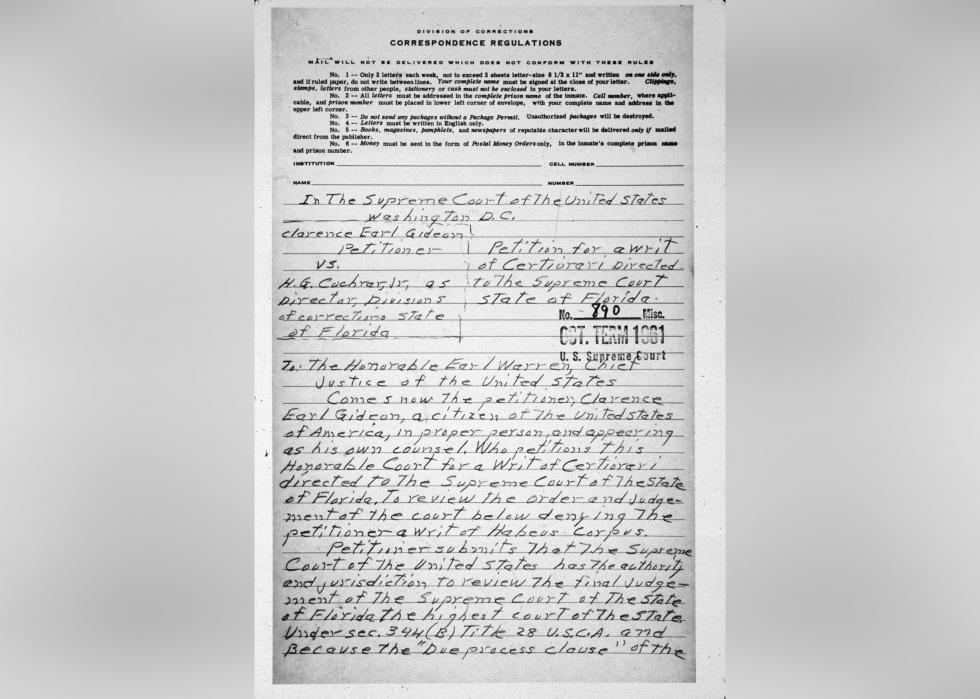 DIVISION OF CORRECTIONS
CORRESPONDENCE REGULATIONS
MAIL WILL NOT BE DELIVERED WHICH DOES NOT CONFORM WITH THESE RULES
No. 1 -- Only 2 letters each week, not to exceed 2 sheets letter-size 8 1/2 x 11" and written on one side only,
and if ruled paper, do not write between lines. Your complete name must be signed at the close of your letter. Clippings,
stamps, letters from other people, stationery or cash must not be enclosed in your letters.
No. 2 -- All letters must be addressed in the complete prison name of the inmate. Cell number, where appli-
cable, and prison number must be placed in lower left corner of envelope, with your complete name and address in the
upper left corner.
No. 3 -- Do not send any packages without a Package Permit. Unauthorized packages will be destroyed.
No. 4 -- Letters must be written in English only.
No. 5 -- Books, magazines, pamphlets, and newspapers of reputable character will be delivered only if mailed
direct from the publisher.
No. 6 -- Money must be sent in the form of Postal Money Orders only, in the inmate's complete prison name
and prison number.
INSTITUTION CELL NUMBER
NAME NUMBER
In The Supreme Court of The United States
Washington D.C.
Clarence Earl Gideon
Petitioner
vs.
H.G. Cochran, Jr, as
Director, Divisions
of corrections State
of Florida
Petition for a writ
of Certiorari Directed
to The Supreme Court
State of Florida.
No. 890 Misc.
OCT. TERM 1961
U. S. Supreme Court
To: The Honorable Earl Warren, Chief
Justice of the United States
Comes now The petitioner, Clarence
Earl Gideon, a citizen of The United states
of America, in proper person, and appearing
as his own counsel. Who petitions this
Honorable Court for a Writ of Certiorari
directed to The Supreme Court of The State
of Florida. To review the order and Judge-
ment of the court below denying The
petitioner a writ of Habeus Corpus.
Petitioner submits That The Supreme
Court of The United States has The authority
and jurisdiction to review The final Judge-
ment of The Supreme Court of The State
of Florida the highest court of The State
Under sec. 344(B) Title 28 U.S.C.A. and
Because the "Due process clause" of the